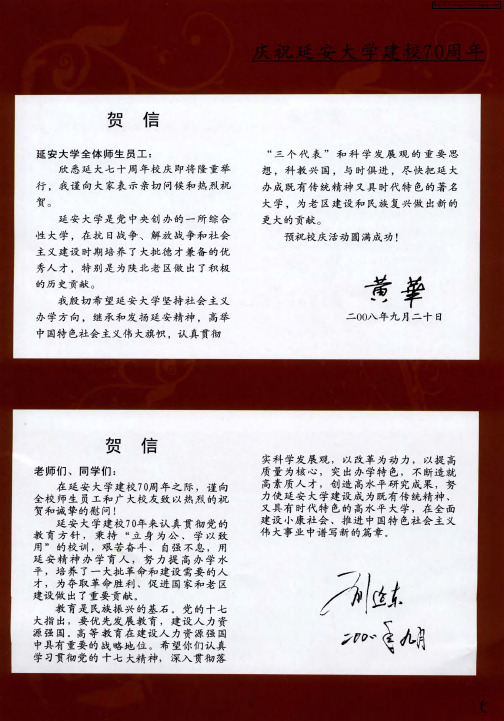 庆祝延安大学建校70周年
贺 信
延安大学全体师生员工：
欣悉延大七十周年校庆即将隆重举
行，我谨向大家表示亲切问候和热烈祝
贺。
延安大学是党中央创办的一所综合
性大学，在抗日战争、解放战争和社会
主义建设时期培养了大批德才兼备的优
秀人才，特别是为陕北老区做出了积极
的历史贡献。
我殷切希望延安大学坚持社会主义
办学方向，继承和发扬延安精神，高举
中国特色社会主义伟大旗帜，认真贯彻
“三个代表”和科学发展观的重要思
想，科教兴国，与时俱进，尽快把延大
办成既有传统精神又具时代特色的著名
大学，为老区建设和民族复兴做出新的
更大的贡献。
预祝校庆活动圆满成功！
黄華
二00八年九月二十日
贺 信
老师们、同学们：
在延安大学建校70周年之际，谨向
全校师生员工和广大校友致以热烈的祝
贺和诚挚的慰问！
延安大学建校70年来认真贯彻党的
教育方针，秉持“立身为公、学以致
用”的校训，艰苦奋斗、自强不息，用
延安精神办学育人，努力提高办学水
平，培养了一大批革命和建设需要的人
才，为夺取革命胜利、促进国家和老区
建设做出了重要贡献。
教育是民族振兴的基石。党的十七
大指出，要优先发展教育，建设人力资
源强国。高等教育在建设人力资源强国
中具有重要的战略地位。希望你们认真
学习贯彻党的十七大精神，深入贯彻落
实科学发展观，以改革为动力，以提高
质量为核心，突出办学特色，不断造就
高素质人才，创造高水平研究成果，努
力使延安大学建设成为既有传统精神、
又具有时代特色的高水平大学，在全面
建设小康社会、推进中国特色社会主义
伟大事业中谱写新的篇章。
刘延东
二〇〇八年九月
七